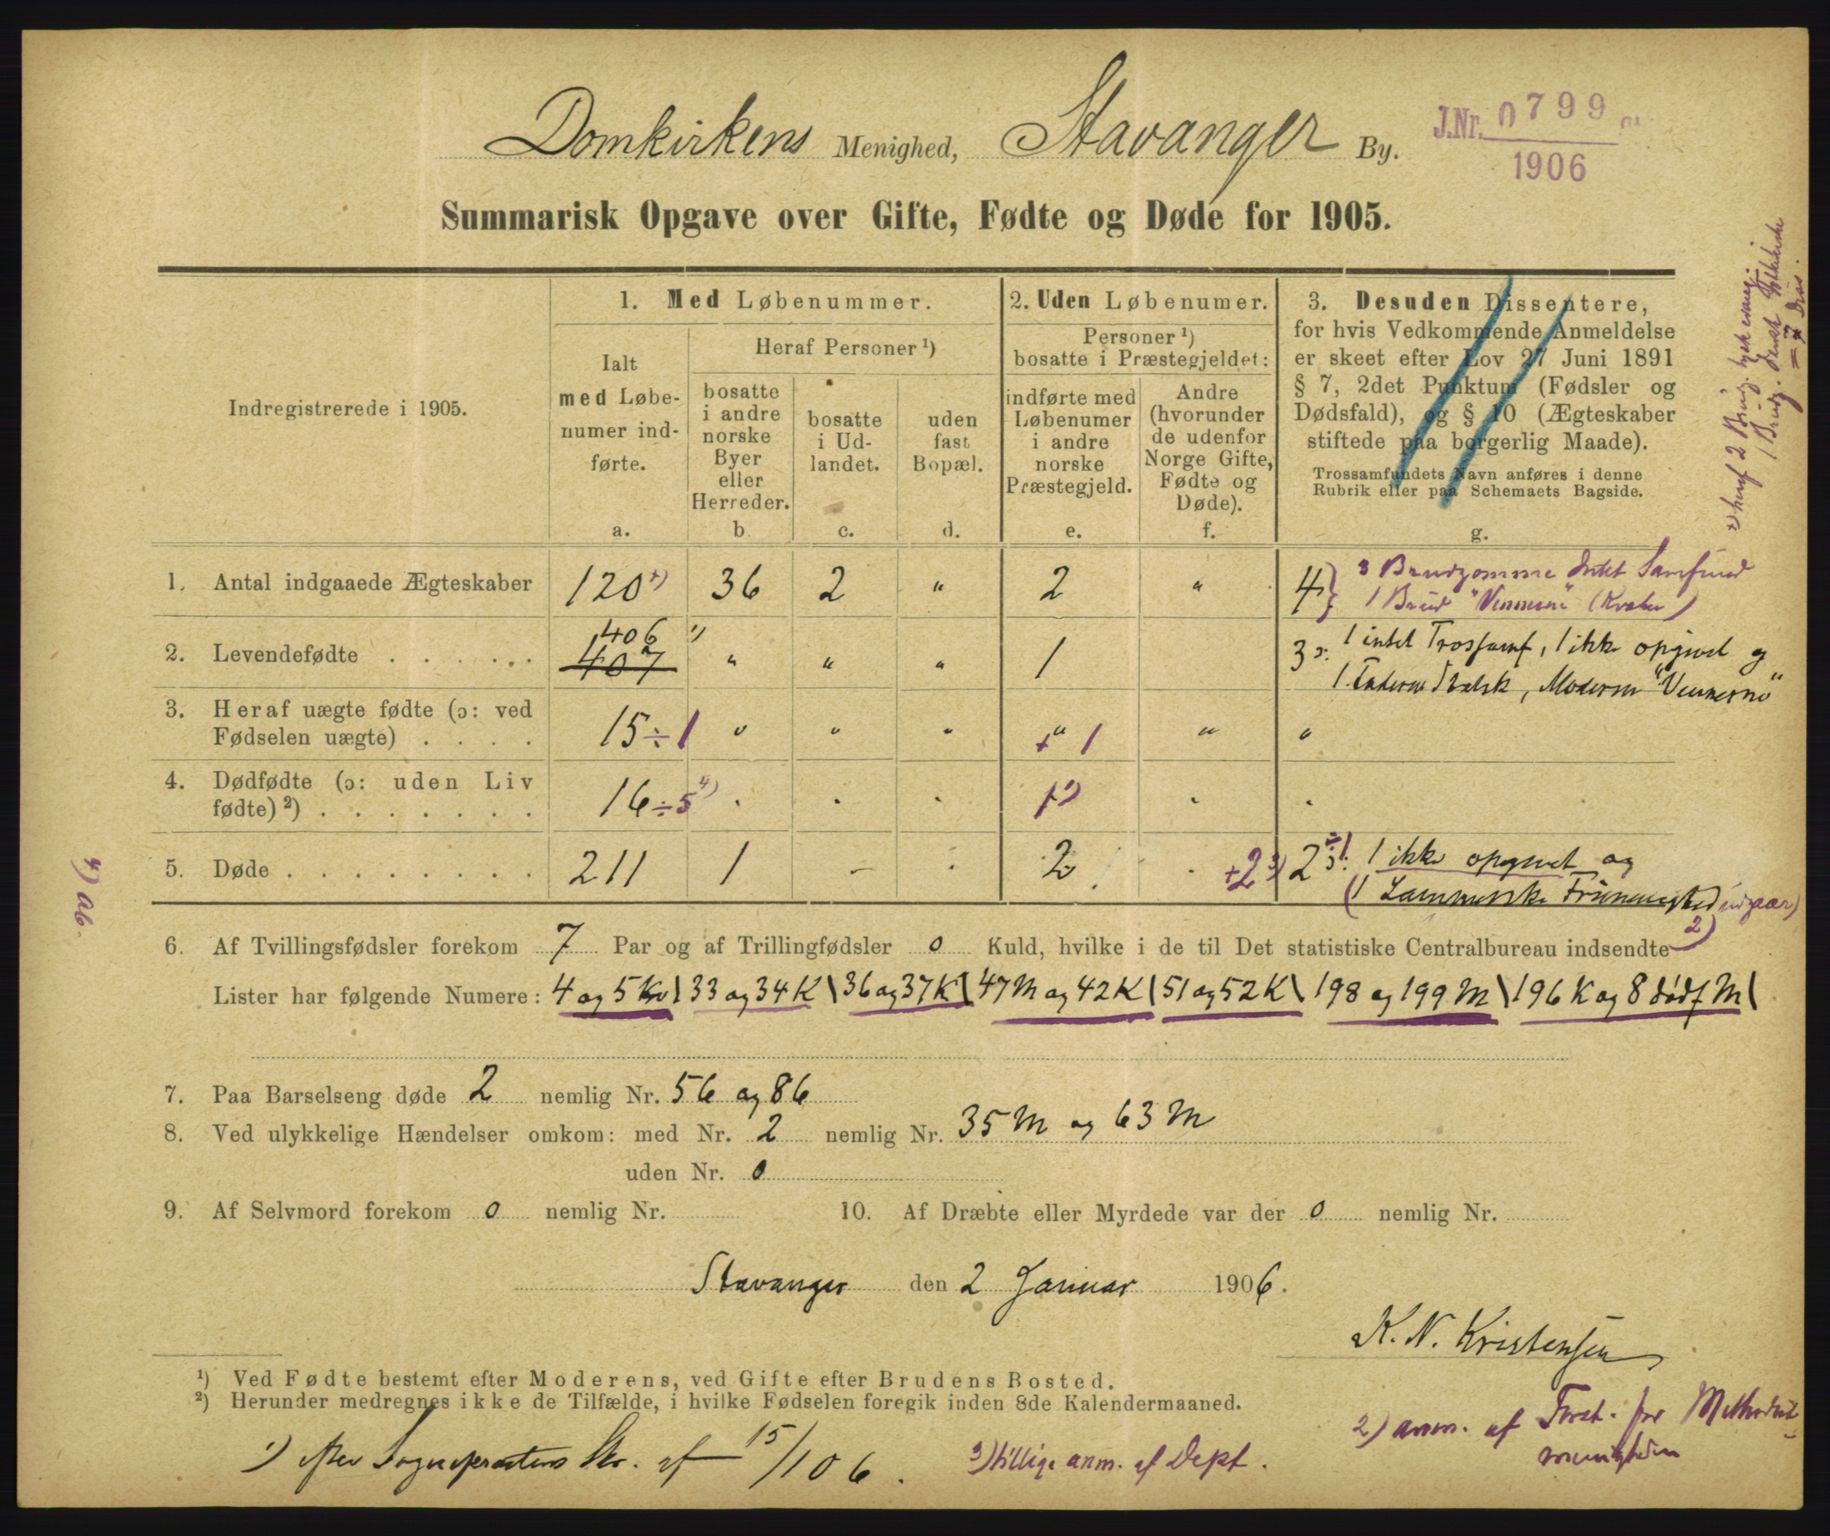 Domkirkens Menighed, Stavanger By.
J.Nr. 0799
1906
Summarisk Opgave over Gifte, Fødte og Døde for 1905.
Indregistrerede i 1905.
1. Med Løbenummer.
Ialt
med Løbe-
numer ind-
førte.
a.
Heraf Personer ¹)
bosatte
i andre
norske
Byer
eller
Herreder.
b
bosatte
i Ud-
landet.
c.
uden
fast
Bopæl.
d.
2. Uden Løbenumer.
Personer ¹)
bosatte i Præstegjeldet:
indførte med
Løbenumer
i andre
norske
Præstegjeld.
e.
Andre
(hvorunder
de udenfor
Norge Gifte,
Fødte og
Døde).
f.
3. Desuden Dissentere,
for hvis Vedkommende Anmeldelse
er skeet efter Lov 27 Juni 1891
§ 7, 2det Punktum (Fødsler og
Dødsfald), og § 10 (Ægteskaber
stiftede paa borgerlig Maade).
Trossamfundets Navn anføres i denne
Rubrik eller paa Schemaets Bagside.
g.
1. Antal indgaaede Ægteskaber 120 36 2 " 2 " 4 } 3 Brudgomme Intet Samfund
1 Brud "Vennerne" (Kvæker)
406 ¹)
2. Levendefødte . . . . . . 407 " " " 1 3 ɔ: 1 intet Trossamf, 1 ikke opgivet og
1. Faderen Statsk, Moderen "Vennerne"
3. Heraf uægte fødte (ɔ: ved
Fødselen uægte) . . . . 15 ÷ 1 " " " " + 1 " "
4. Dødfødte (ɔ: uden Liv
fødte) ²) . . . . . . . 16 ÷ 5 ⁴) . . . 1 . .
5. Døde . . . . . . . . 211 1 – . 2 . +2 ³) 2 ÷1 ɔ: 1 ikke opgivet og
(1 Lammerske Frimenighed udgaar)
2)
6. Af Tvillingsfødsler forekom 7 Par og af Trillingfødsler 0 Kuld, hvilke i de til Det statistiske Centralbureau indsendte
Lister har følgende Numere: 4 og 5 Kv | 33 og 34 K | 36 og 37 K | 47 M og 42 K | 51 og 52 K | 198 og 199 M | 196 K og 8 dødf M |
7. Paa Barselseng døde 2 nemlig Nr. 56 og 86
8. Ved ulykkelige Hændelser omkom: med Nr. 2 nemlig Nr. 35 M og 63 M
uden Nr. 0
9. Af Selvmord forekom 0 nemlig Nr. 10. Af Dræbte eller Myrdede var der 0 nemlig Nr.
Stavanger den 2 Januar 1906.
K. N. Kristensen
¹) Ved Fødte bestemt efter Moderens, ved Gifte efter Brudens Bosted.
²) Herunder medregnes ikke de Tilfælde, i hvilke Fødselen foregik inden 8de Kalendermaaned.
¹) efter Sogneprestens Skr. af 15/1 06.
³) tillige anm. af Dept.
2) anm. af Forst. for Methodist-
menigheden
4) ab.